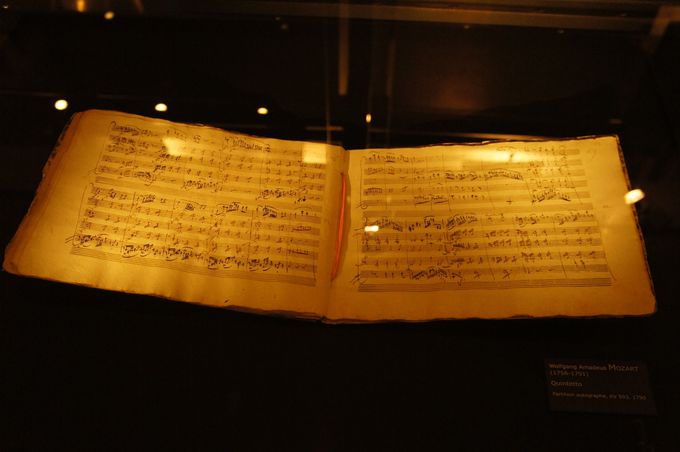 Wolfgang Amadeus MOZART
(1756-1791)
Quintetto
Partition autographe, KV 593, 1790